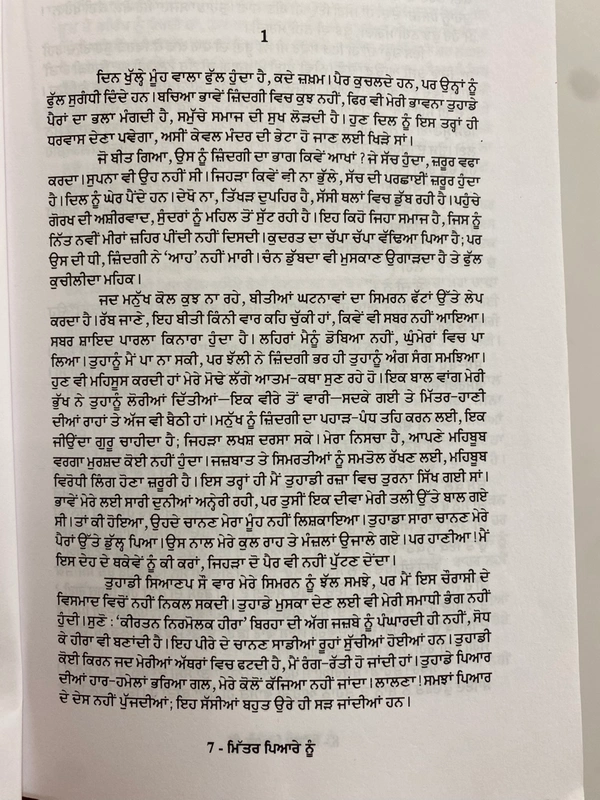 1
ਦਿਨ ਖੁੱਲ੍ਹੇ ਮੂੰਹ ਵਾਲਾ ਫੁੱਲ ਹੁੰਦਾ ਹੈ, ਕਦੇ ਜ਼ਖ਼ਮ। ਪੈਰ ਕੁਚਲਦੇ ਹਨ, ਪਰ ਉਨ੍ਹਾਂ ਨੂੰ
ਫੁੱਲ ਸੁਗੰਧੀ ਦਿੰਦੇ ਹਨ। ਬਚਿਆ ਭਾਵੇਂ ਜ਼ਿੰਦਗੀ ਵਿਚ ਕੁਝ ਨਹੀਂ, ਫਿਰ ਵੀ ਮੇਰੀ ਭਾਵਨਾ ਤੁਹਾਡੇ
ਪੈਰਾਂ ਦਾ ਭਲਾ ਮੰਗਦੀ ਹੈ, ਸਮੁੱਚੇ ਸਮਾਜ ਦੀ ਸੁਖ ਲੋੜਦੀ ਹੈ। ਹੁਣ ਦਿਲ ਨੂੰ ਇਸ ਤਰ੍ਹਾਂ ਹੀ
ਧਰਵਾਸ ਦੇਣਾ ਪਵੇਗਾ, ਅਸੀਂ ਕੇਵਲ ਮੰਦਰ ਦੀ ਭੇਟਾ ਹੋ ਜਾਣ ਲਈ ਖਿੜੇ ਸਾਂ।
ਜੋ ਬੀਤ ਗਿਆ, ਉਸ ਨੂੰ ਜ਼ਿੰਦਗੀ ਦਾ ਭਾਗ ਕਿਵੇਂ ਆਖਾਂ? ਜੇ ਸੱਚ ਹੁੰਦਾ, ਜ਼ਰੂਰ ਵਫਾ
ਕਰਦਾ। ਸੁਪਨਾ ਵੀ ਉਹ ਨਹੀਂ ਸੀ। ਜਿਹੜਾ ਕਿਵੇਂ ਵੀ ਨਾ ਭੁੱਲੇ, ਸੱਚ ਦੀ ਪਰਛਾਈਂ ਜ਼ਰੂਰ ਹੁੰਦਾ
ਹੈ। ਦਿਲ ਨੂੰ ਘੇਰ ਪੈਂਦੇ ਹਨ। ਦੇਖੋ ਨਾ, ਤਿੱਖੜ ਦੁਪਹਿਰ ਹੈ, ਸੱਸੀ ਥਲਾਂ ਵਿਚ ਡੁੱਬ ਰਹੀ ਹੈ। ਪਹੁੰਚੇ
ਗੋਰਖ ਦੀ ਅਸ਼ੀਰਵਾਦ, ਸੁੰਦਰਾਂ ਨੂੰ ਮਹਿਲ ਤੋਂ ਸੁੱਟ ਰਹੀ ਹੈ। ਇਹ ਕਿਹੋ ਜਿਹਾ ਸਮਾਜ ਹੈ, ਜਿਸ ਨੂੰ
ਨਿੱਤ ਨਵੀਂ ਮੀਰਾਂ ਜ਼ਹਿਰ ਪੀਂਦੀ ਨਹੀਂ ਦਿਸਦੀ। ਕੁਦਰਤ ਦਾ ਚੱਪਾ ਚੱਪਾ ਵੱਢਿਆ ਪਿਆ ਹੈ; ਪਰ
ਉਸ ਦੀ ਧੀ, ਜ਼ਿੰਦਗੀ ਨੇ 'ਆਹ' ਨਹੀਂ ਮਾਰੀ। ਚੰਨ ਡੁੱਬਦਾ ਵੀ ਮੁਸਕਾਣ ਉਗਾੜਦਾ ਹੈ ਤੇ ਫੁੱਲ
ਕੁਚੀਲੀਦਾ ਮਹਿਕ।
ਜਦ ਮਨੁੱਖ ਕੋਲ ਕੁਝ ਨਾ ਰਹੇ, ਬੀਤੀਆਂ ਘਟਨਾਵਾਂ ਦਾ ਸਿਮਰਨ ਫੱਟਾਂ ਉੱਤੇ ਲੇਪ
ਕਰਦਾ ਹੈ। ਰੱਬ ਜਾਣੇ, ਇਹ ਬੀਤੀ ਕਿੰਨੀ ਵਾਰ ਕਹਿ ਚੁੱਕੀ ਹਾਂ, ਕਿਵੇਂ ਵੀ ਸਬਰ ਨਹੀਂ ਆਇਆ।
ਸਬਰ ਸ਼ਾਇਦ ਪਾਰਲਾ ਕਿਨਾਰਾ ਹੁੰਦਾ ਹੈ। ਲਹਿਰਾਂ ਮੈਨੂੰ ਡੋਬਿਆ ਨਹੀਂ, ਘੁੰਮੇਰਾਂ ਵਿਚ ਪਾ
ਲਿਆ। ਤੁਹਾਨੂੰ ਮੈਂ ਪਾ ਨਾ ਸਕੀ, ਪਰ ਝੱਲੀ ਨੇ ਜ਼ਿੰਦਗੀ ਭਰ ਹੀ ਤੁਹਾਨੂੰ ਅੰਗ ਸੰਗ ਸਮਝਿਆ।
ਹੁਣ ਵੀ ਮਹਿਸੂਸ ਕਰਦੀ ਹਾਂ ਮੇਰੇ ਮੋਢੇ ਲੱਗੇ ਆਤਮ-ਕਥਾ ਸੁਣ ਰਹੇ ਹੋ। ਇਕ ਬਾਲ ਵਾਂਗ ਮੇਰੀ
ਭੁੱਖ ਨੇ ਤੁਹਾਨੂੰ ਲੋਰੀਆਂ ਦਿੱਤੀਆਂ—ਇਕ ਵੀਰੇ ਤੋਂ ਵਾਰੀ—ਸਦਕੇ ਗਈ ਤੇ ਮਿੱਤਰ-ਹਾਣੀ
ਦੀਆਂ ਰਾਹਾਂ ਤੇ ਅੱਜ ਵੀ ਬੈਠੀ ਹਾਂ। ਮਨੁੱਖ ਨੂੰ ਜ਼ਿੰਦਗੀ ਦਾ ਪਹਾੜ-ਪੰਧ ਤਹਿ ਕਰਨ ਲਈ, ਇਕ
ਜੀਉਂਦਾ ਗੁਰੂ ਚਾਹੀਦਾ ਹੈ; ਜਿਹੜਾ ਲਖਸ਼ ਦਰਸਾ ਸਕੇ। ਮੇਰਾ ਨਿਸਚਾ ਹੈ, ਆਪਣੇ ਮਹਿਬੂਬ
ਵਰਗਾ ਮੁਰਸ਼ਦ ਕੋਈ ਨਹੀਂ ਹੁੰਦਾ। ਜਜ਼ਬਾਤ ਤੇ ਸਿਮਰਤੀਆਂ ਨੂੰ ਸਮਤੋਲ ਰੱਖਣ ਲਈ, ਮਹਿਬੂਬ
ਵਿਰੋਧੀ ਲਿੰਗ ਹੋਣਾ ਜ਼ਰੂਰੀ ਹੈ। ਇਸ ਤਰ੍ਹਾਂ ਹੀ ਮੈਂ ਤੁਹਾਡੀ ਰਜ਼ਾ ਵਿਚ ਤੁਰਨਾ ਸਿੱਖ ਗਈ ਸਾਂ।
ਭਾਵੇਂ ਮੇਰੇ ਲਈ ਸਾਰੀ ਦੁਨੀਆਂ ਅਨ੍ਹੇਰੀ ਰਹੀ, ਪਰ ਤੁਸੀਂ ਇਕ ਦੀਵਾ ਮੇਰੀ ਤਲੀ ਉੱਤੇ ਬਾਲ ਗਏ
ਸੀ। ਤਾਂ ਕੀ ਹੋਇਆ, ਉਹਦੇ ਚਾਨਣ ਮੇਰਾ ਮੂੰਹ ਨਹੀਂ ਲਿਸ਼ਕਾਇਆ। ਤੁਹਾਡਾ ਸਾਰਾ ਚਾਨਣ ਮੇਰੇ
ਪੈਰਾਂ ਉੱਤੇ ਡੁੱਲ੍ਹ ਪਿਆ। ਉਸ ਨਾਲ ਮੇਰੇ ਕੁਲ ਰਾਹ ਤੇ ਮੰਜ਼ਲਾਂ ਉਜਾਲੇ ਗਏ। ਪਰ ਹਾਣੀਆ! ਮੈਂ
ਇਸ ਦੇਹ ਦੇ ਥਕੇਵੇਂ ਨੂੰ ਕੀ ਕਰਾਂ, ਜਿਹੜਾ ਦੋ ਪੈਰ ਵੀ ਨਹੀਂ ਪੁੱਟਣ ਦੇਂਦਾ।
ਤੁਹਾਡੀ ਸਿਆਣਪ ਸੌ ਵਾਰ ਮੇਰੇ ਸਿਮਰਨ ਨੂੰ ਝੱਲ ਸਮਝੇ, ਪਰ ਮੈਂ ਇਸ ਚੌਰਾਸੀ ਦੇ
ਵਿਸਮਾਦ ਵਿਚੋਂ ਨਹੀਂ ਨਿਕਲ ਸਕਦੀ। ਤੁਹਾਡੇ ਮੁਸਕਾ ਦੇਣ ਲਈ ਵੀ ਮੇਰੀ ਸਮਾਧੀ ਭੰਗ ਨਹੀਂ
ਹੁੰਦੀ। ਸੁਣੋ : 'ਕੀਰਤਨ ਨਿਰਮੋਲਕ ਹੀਰਾ' ਬਿਰਹਾ ਦੀ ਅੱਗ ਜਜ਼ਬੇ ਨੂੰ ਪੰਘਾਰਦੀ ਹੀ ਨਹੀਂ, ਸੋਧ
ਕੇ ਹੀਰਾ ਵੀ ਬਣਾਂਦੀ ਹੈ। ਇਹ ਪੀਰੇ ਦੇ ਚਾਨਣ ਸਾਡੀਆਂ ਰੂਹਾਂ ਸੁੱਚੀਆਂ ਹੋਈਆਂ ਹਨ। ਤੁਹਾਡੀ
ਕੋਈ ਕਿਰਨ ਜਦ ਮੇਰੀਆਂ ਅੱਥਰਾਂ ਵਿਚ ਫਟਦੀ ਹੈ, ਮੈਂ ਰੰਗ-ਰੱਤੀ ਹੋ ਜਾਂਦੀ ਹਾਂ। ਤੁਹਾਡੇ ਪਿਆਰ
ਦੀਆਂ ਹਾਰ-ਹਮੇਲਾਂ ਭਰਿਆ ਗਲ, ਮੇਰੇ ਕੋਲੋਂ ਕੱਜਿਆ ਨਹੀਂ ਜਾਂਦਾ। ਲਾਲਣਾ! ਸਮਝਾਂ ਪਿਆਰ
ਦੇ ਦੇਸ ਨਹੀਂ ਪੁੱਜਦੀਆਂ; ਇਹ ਸੱਸੀਆਂ ਬਹੁਤ ਉਰੇ ਹੀ ਸੜ ਜਾਂਦੀਆਂ ਹਨ।
7 - ਮਿੱਤਰ ਪਿਆਰੇ ਨੂੰ